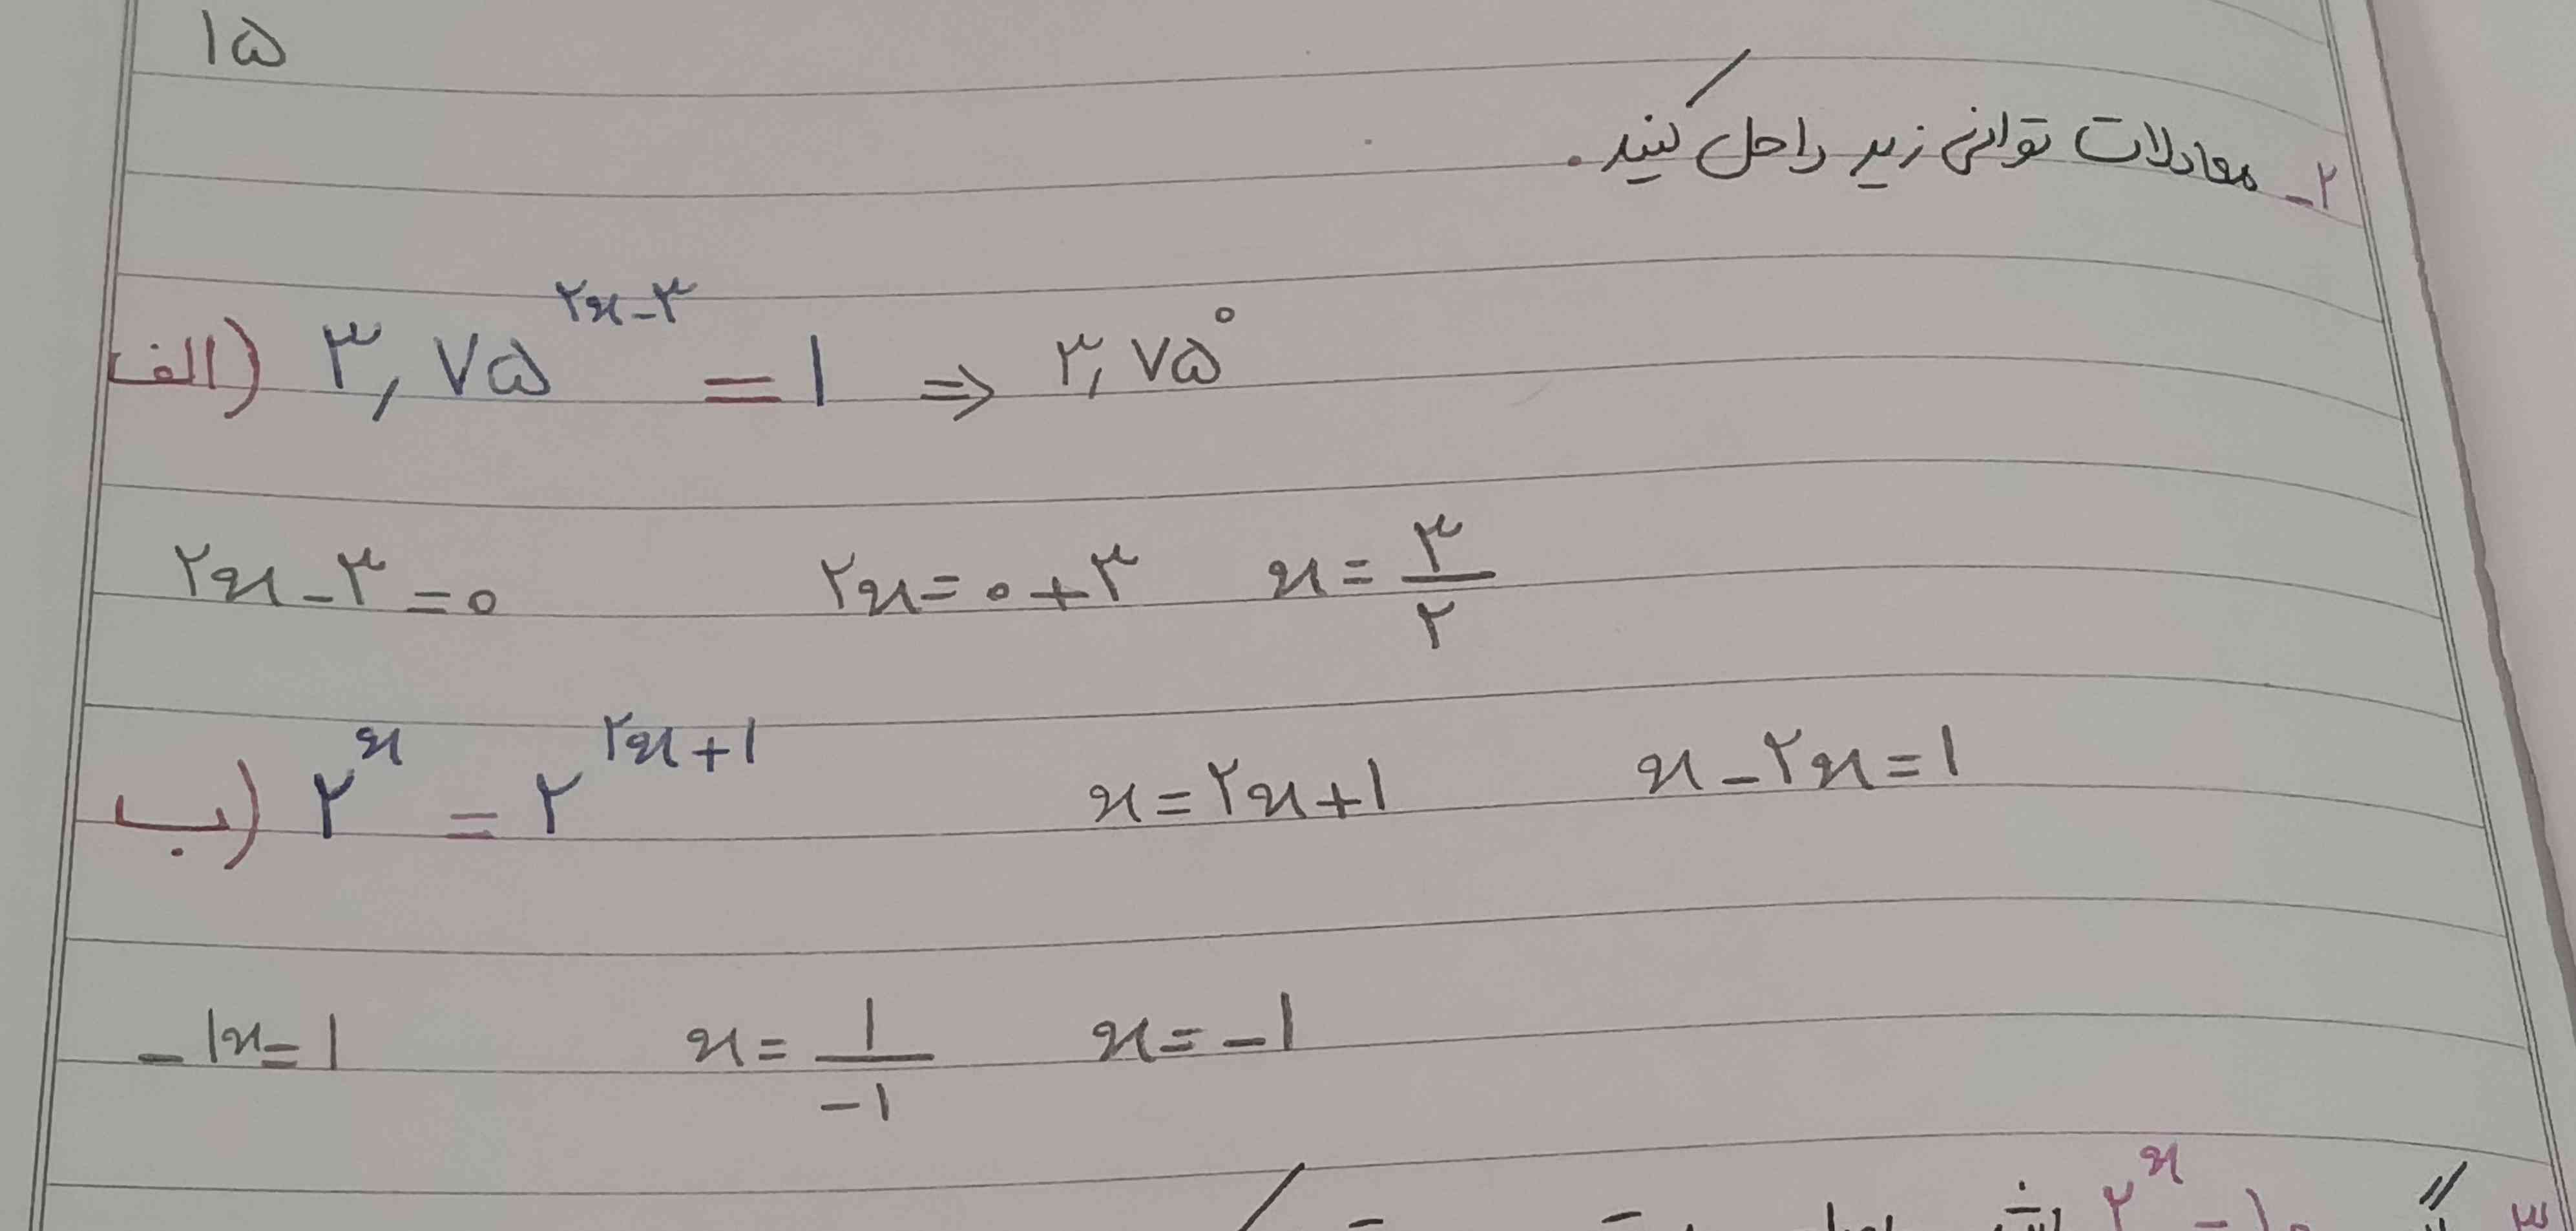 ۱۵
۲_ معادلات توانی زیر را حل کنید.
الف) ۳,۷۵^۲x-۳ = ۱ ⇒ ۳,۷۵^۰
۲x-۳=۰ ۲x=۰+۳ x=۳/۲
ب) ۲^x = ۲^۲x+۱ x=۲x+۱ x-۲x=۱
-۱x=۱ x=۱/-۱ x=-۱
۳ ۲^x =